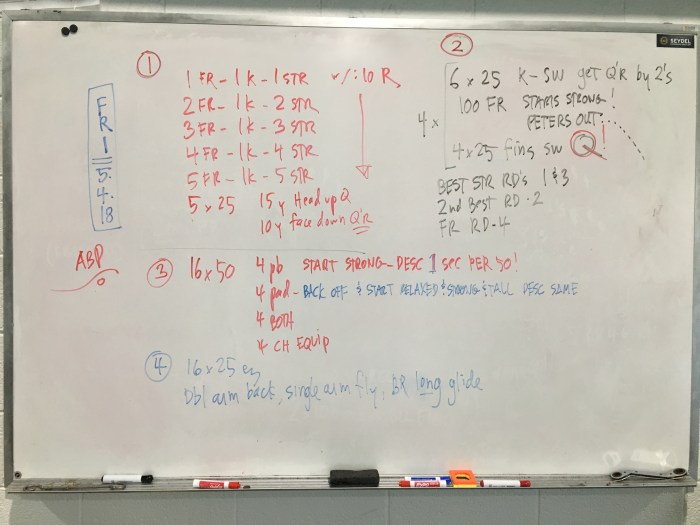 FRI
5.4.18
ABP
1
1 FR - 1 K - 1 STR w/:10 R
2 FR - 1 K - 2 STR
3 FR - 1 K - 3 STR
4 FR - 1 K - 4 STR
5 FR - 1 K - 5 STR
5 x 25 15 y Head up Q
10 y face down Q'R
2
4 x
6 x 25 K - SW get Q'R by 2's
100 FR STARTS STRONG!
PETERS OUT...
4 x 25 fins SW Q!
BEST STR RD's 1 & 3
2nd Best RD - 2
FR RD - 4
3
16 x 50 4 pb START STRONG - DESC 1 SEC PER 50!
4 pad - BACK OFF & START RELAXED & STRONG & TALL DESC SAME
4 BOTH
4 CH EQUIP
4
16 x 25 ez
Dbl arm back, single arm fly, BR long glide
SEYDEL
EXPO